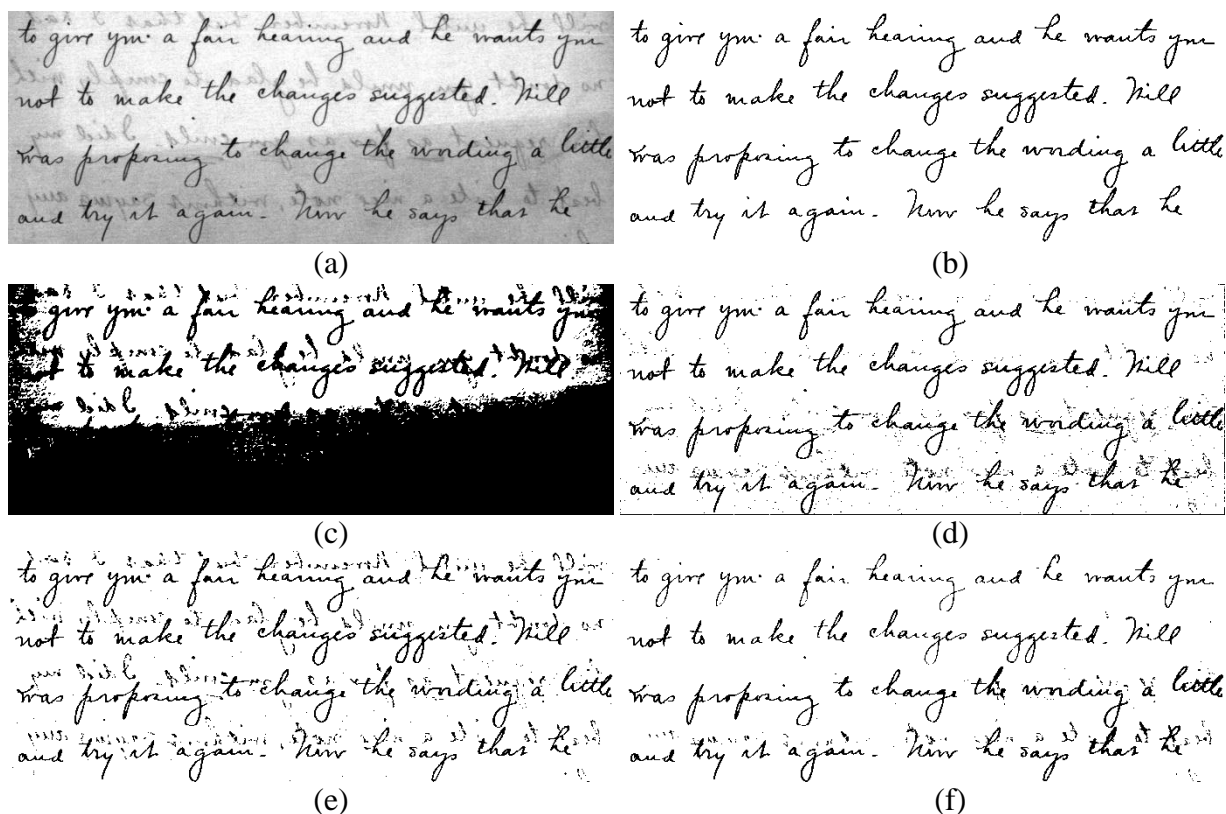 to give you a fair hearing and he wants you
not to make the changes suggested. Will
was proposing to change the wording a little
and try it again. Now he says that he
(a)
to give you a fair hearing and he wants you
not to make the changes suggested. Will
was proposing to change the wording a little
and try it again. Now he says that he
(b)
give you a fair hearing and he wants you
to make the changes suggested. Will
(c)
to give you a fair hearing and he wants you
not to make the changes suggested. Will
was proposing to change the wording a little
and try it again. Now he says that he
(d)
to give you a fair hearing and he wants you
not to make the changes suggested. Will
was proposing to change the wording a little
and try it again. Now he says that he
(e)
to give you a fair hearing and he wants you
not to make the changes suggested. Will
was proposing to change the wording a little
and try it again. Now he says that he
(f)